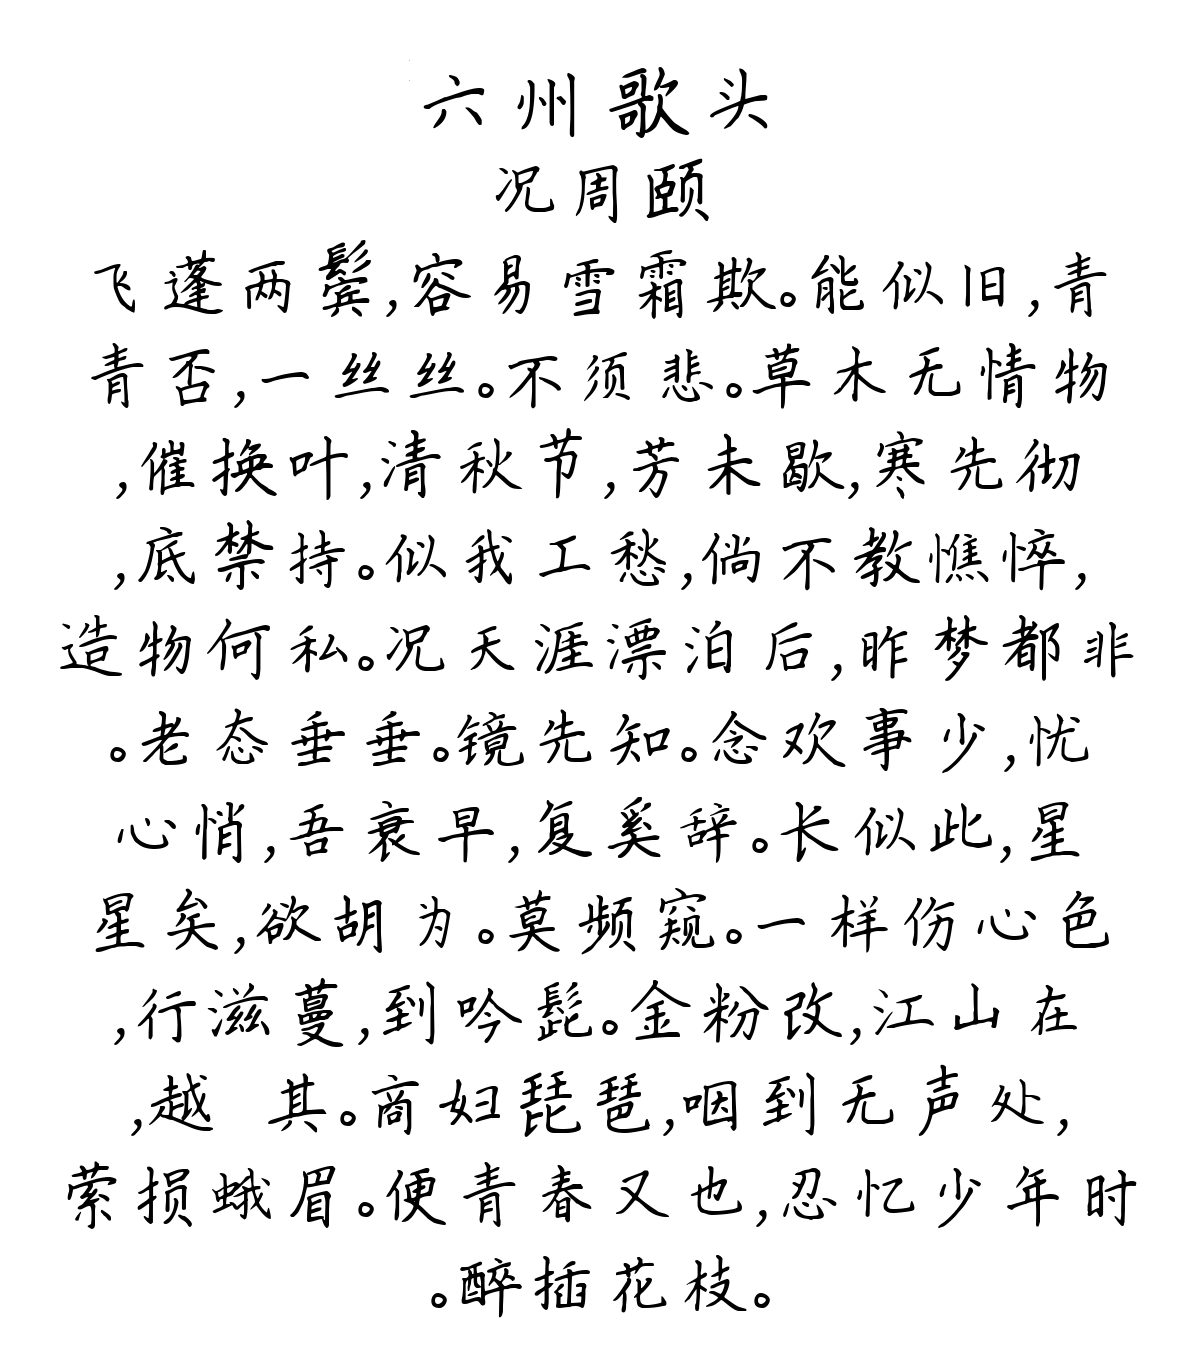 六州歌头
况周颐
飞蓬两鬓,容易雪霜欺。能似旧,青
青否,一丝丝。不须悲。草木无情物
,催换叶,清秋节,芳未歇,寒先彻
,底禁持。似我工愁,倘不教憔悴,
造物何私。况天涯漂泊后,昨梦都非
。老态垂垂。镜先知。念欢事少,忧
心悄,吾衰早,复奚辞。长似此,星
星矣,欲胡为。莫频窥。一样伤心色
,行滋蔓,到吟髭。金粉改,江山在
,越 其。商妇琵琶,咽到无声处,
萦损蛾眉。便青春又也,忍忆少年时
。醉插花枝。